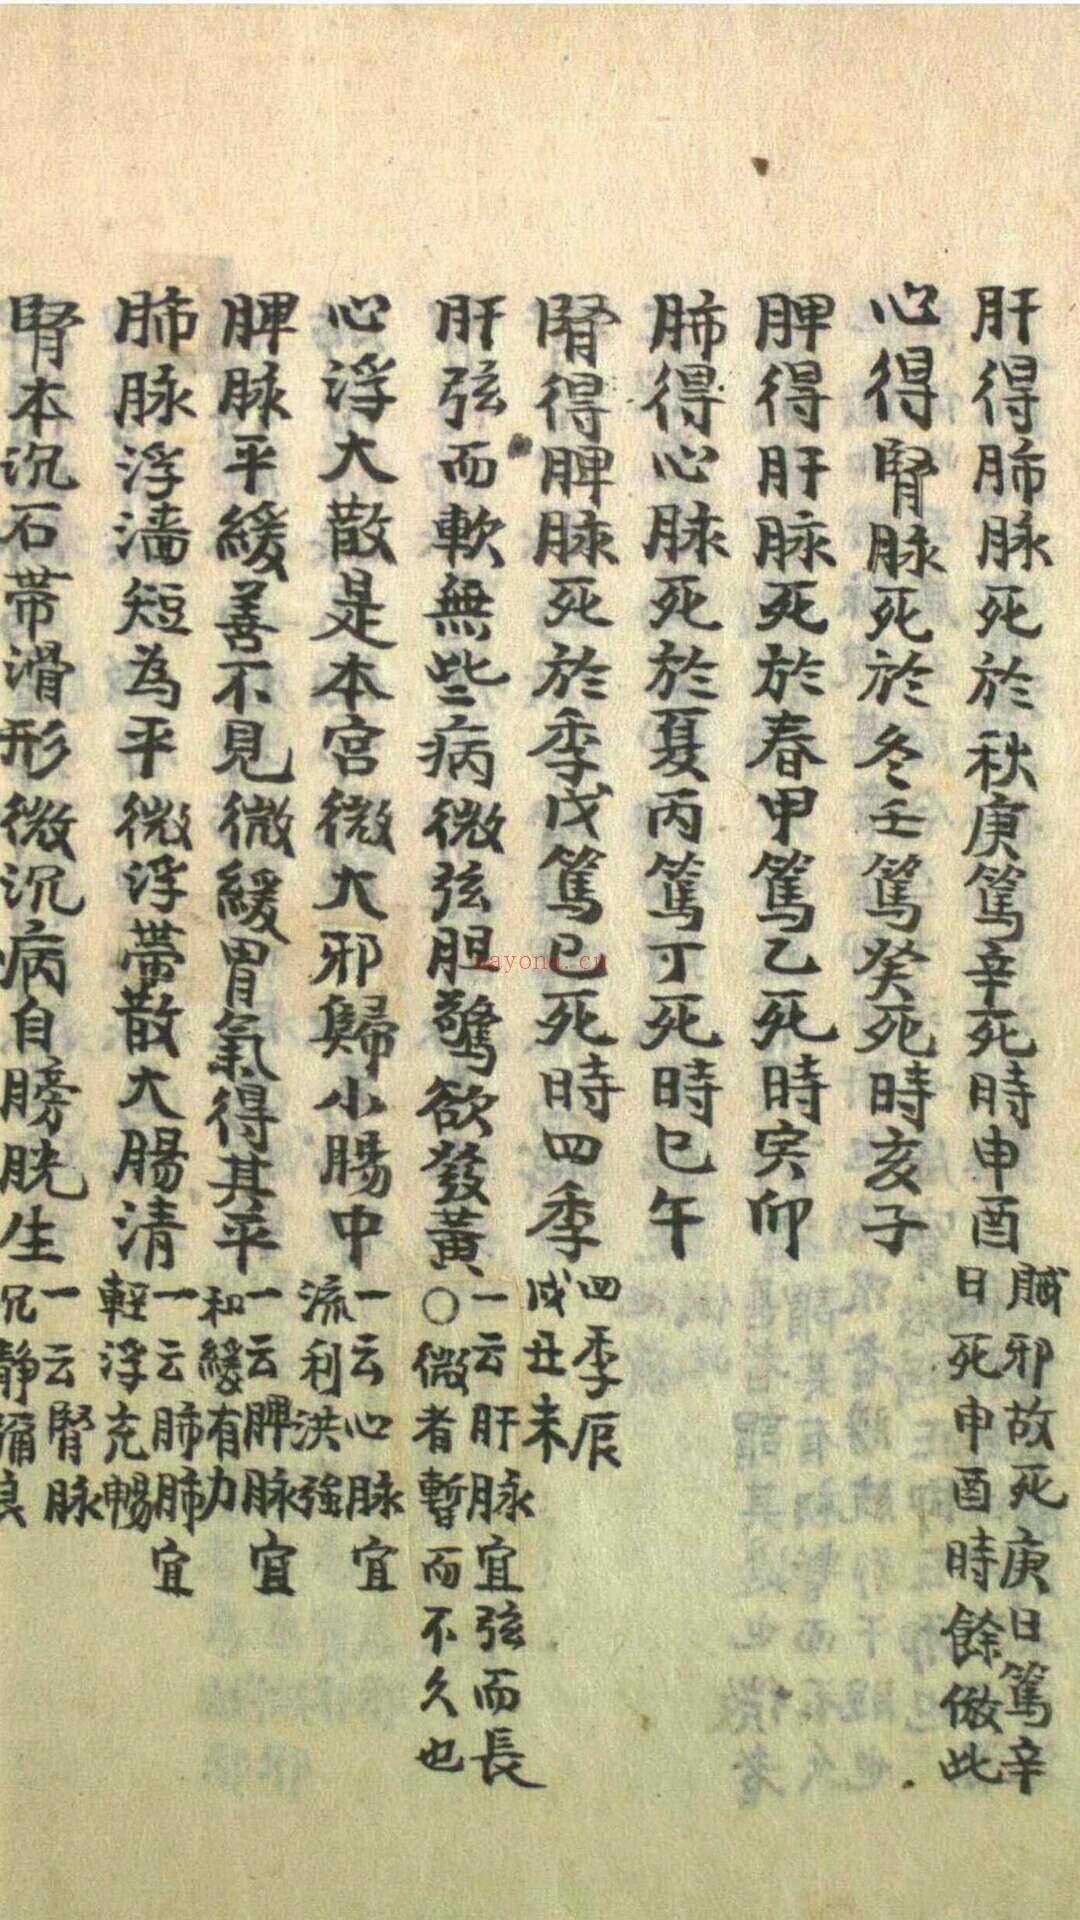 肝得肺脉死於秋庚篤辛死時申酉
賊邪故死庚日篤辛
日死申酉時餘倣此
心得腎脉死於冬壬篤癸死時亥子
脾得肝脉死於春甲篤乙死時寅卯
肺得心脉死於夏丙篤丁死時巳午
腎得脾脉死於季戊篤巳死時四季
四季辰
戌丑未
肝弦而軟無些病微弦胆驚欲發黃
一云肝脉宜弦而長
○微者暫而不久也
心浮大散是本宮微大邪歸小腸中
一云心脉宜
流利洪強
脾脉平緩善不見微緩胃氣得其平
一云脾脉宜
和緩有力
肺脉浮濇短為平微浮帶散大腸清
一云肺肺宜
輕浮充暢
腎本沉石帶滑形微沉病自膀胱生
一云腎脉
沉静
nayona.cn